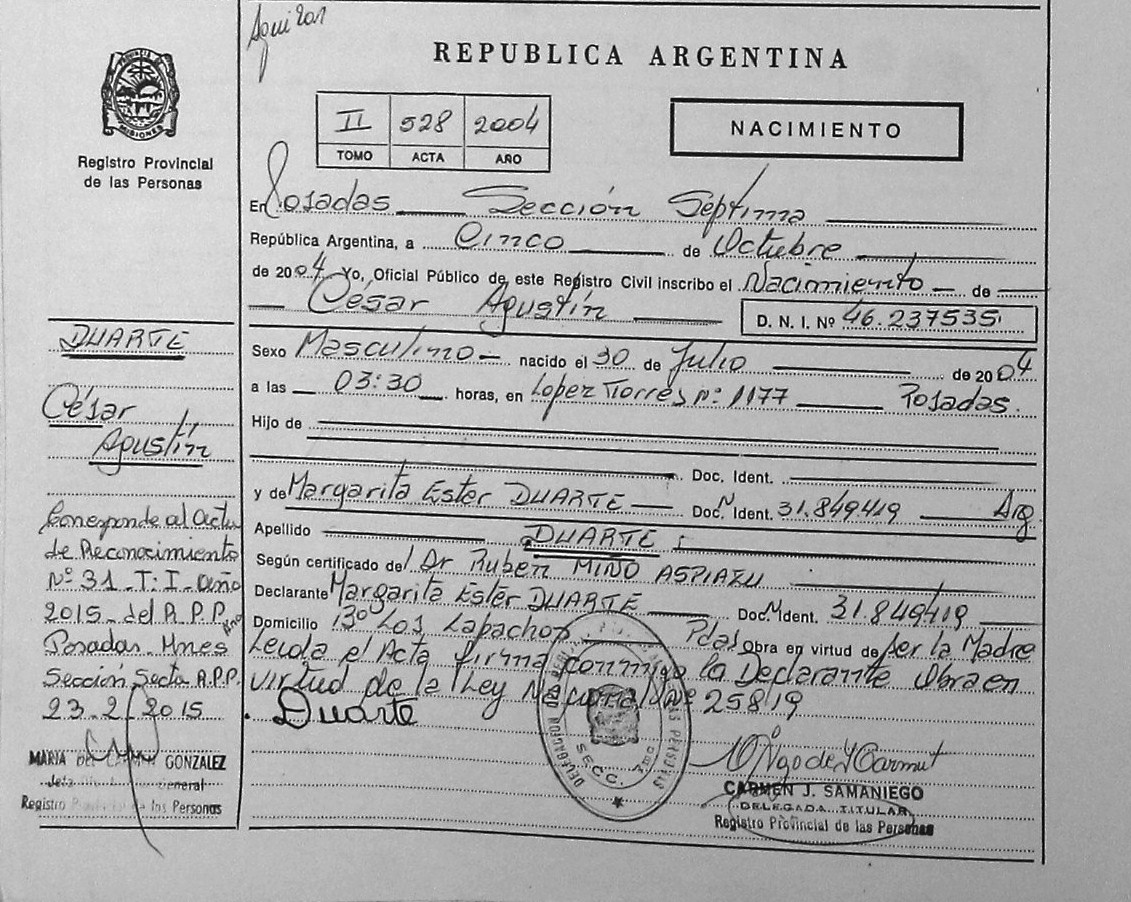 Aguilar
REPUBLICA ARGENTINA
PROVINCIA DE MISIONES
Registro Provincial
de las Personas
II 528 2004
TOMO ACTA AÑO
NACIMIENTO
En Posadas Sección Septima
República Argentina, a Cinco de Octubre
de 2004 Yo, Oficial Público de este Registro Civil inscribo el Nacimiento de
César Agustín
D. N. I. Nº 46.237535
Sexo Masculino nacido el 30 de Julio de 2004
a las 03:30 horas, en Lopez Torres nº 1177 Posadas.
Hijo de
Doc. Ident.
y de Margarita Ester DUARTE Doc. Ident. 31.849.419 Arg.
Apellido DUARTE
Según certificado de Dr Ruben MIÑO ASPIAZU
Declarante Margarita Ester DUARTE Doc. Ident. 31.849419
Domicilio 13º Los Lapachos Pdas Obra en virtud de ser la Madre
Leida el Acta firma conmigo la Declarante Obra en
virtud de la Ley Nacional Nº 25819
Duarte
DUARTE
César
Agustín
Corresponde al Acta
de Reconocimiento
Nº 31 T: I Año
2015 del R.P.P.
Posadas Mnes
Sección Sexta R.P.P.
23.2.2015
MARIA DEL GONZALEZ
General
Registro de las Personas
SECC. 7ma
CARMEN J. SAMANIEGO
DELEGADA TITULAR
Registro Provincial de las Personas